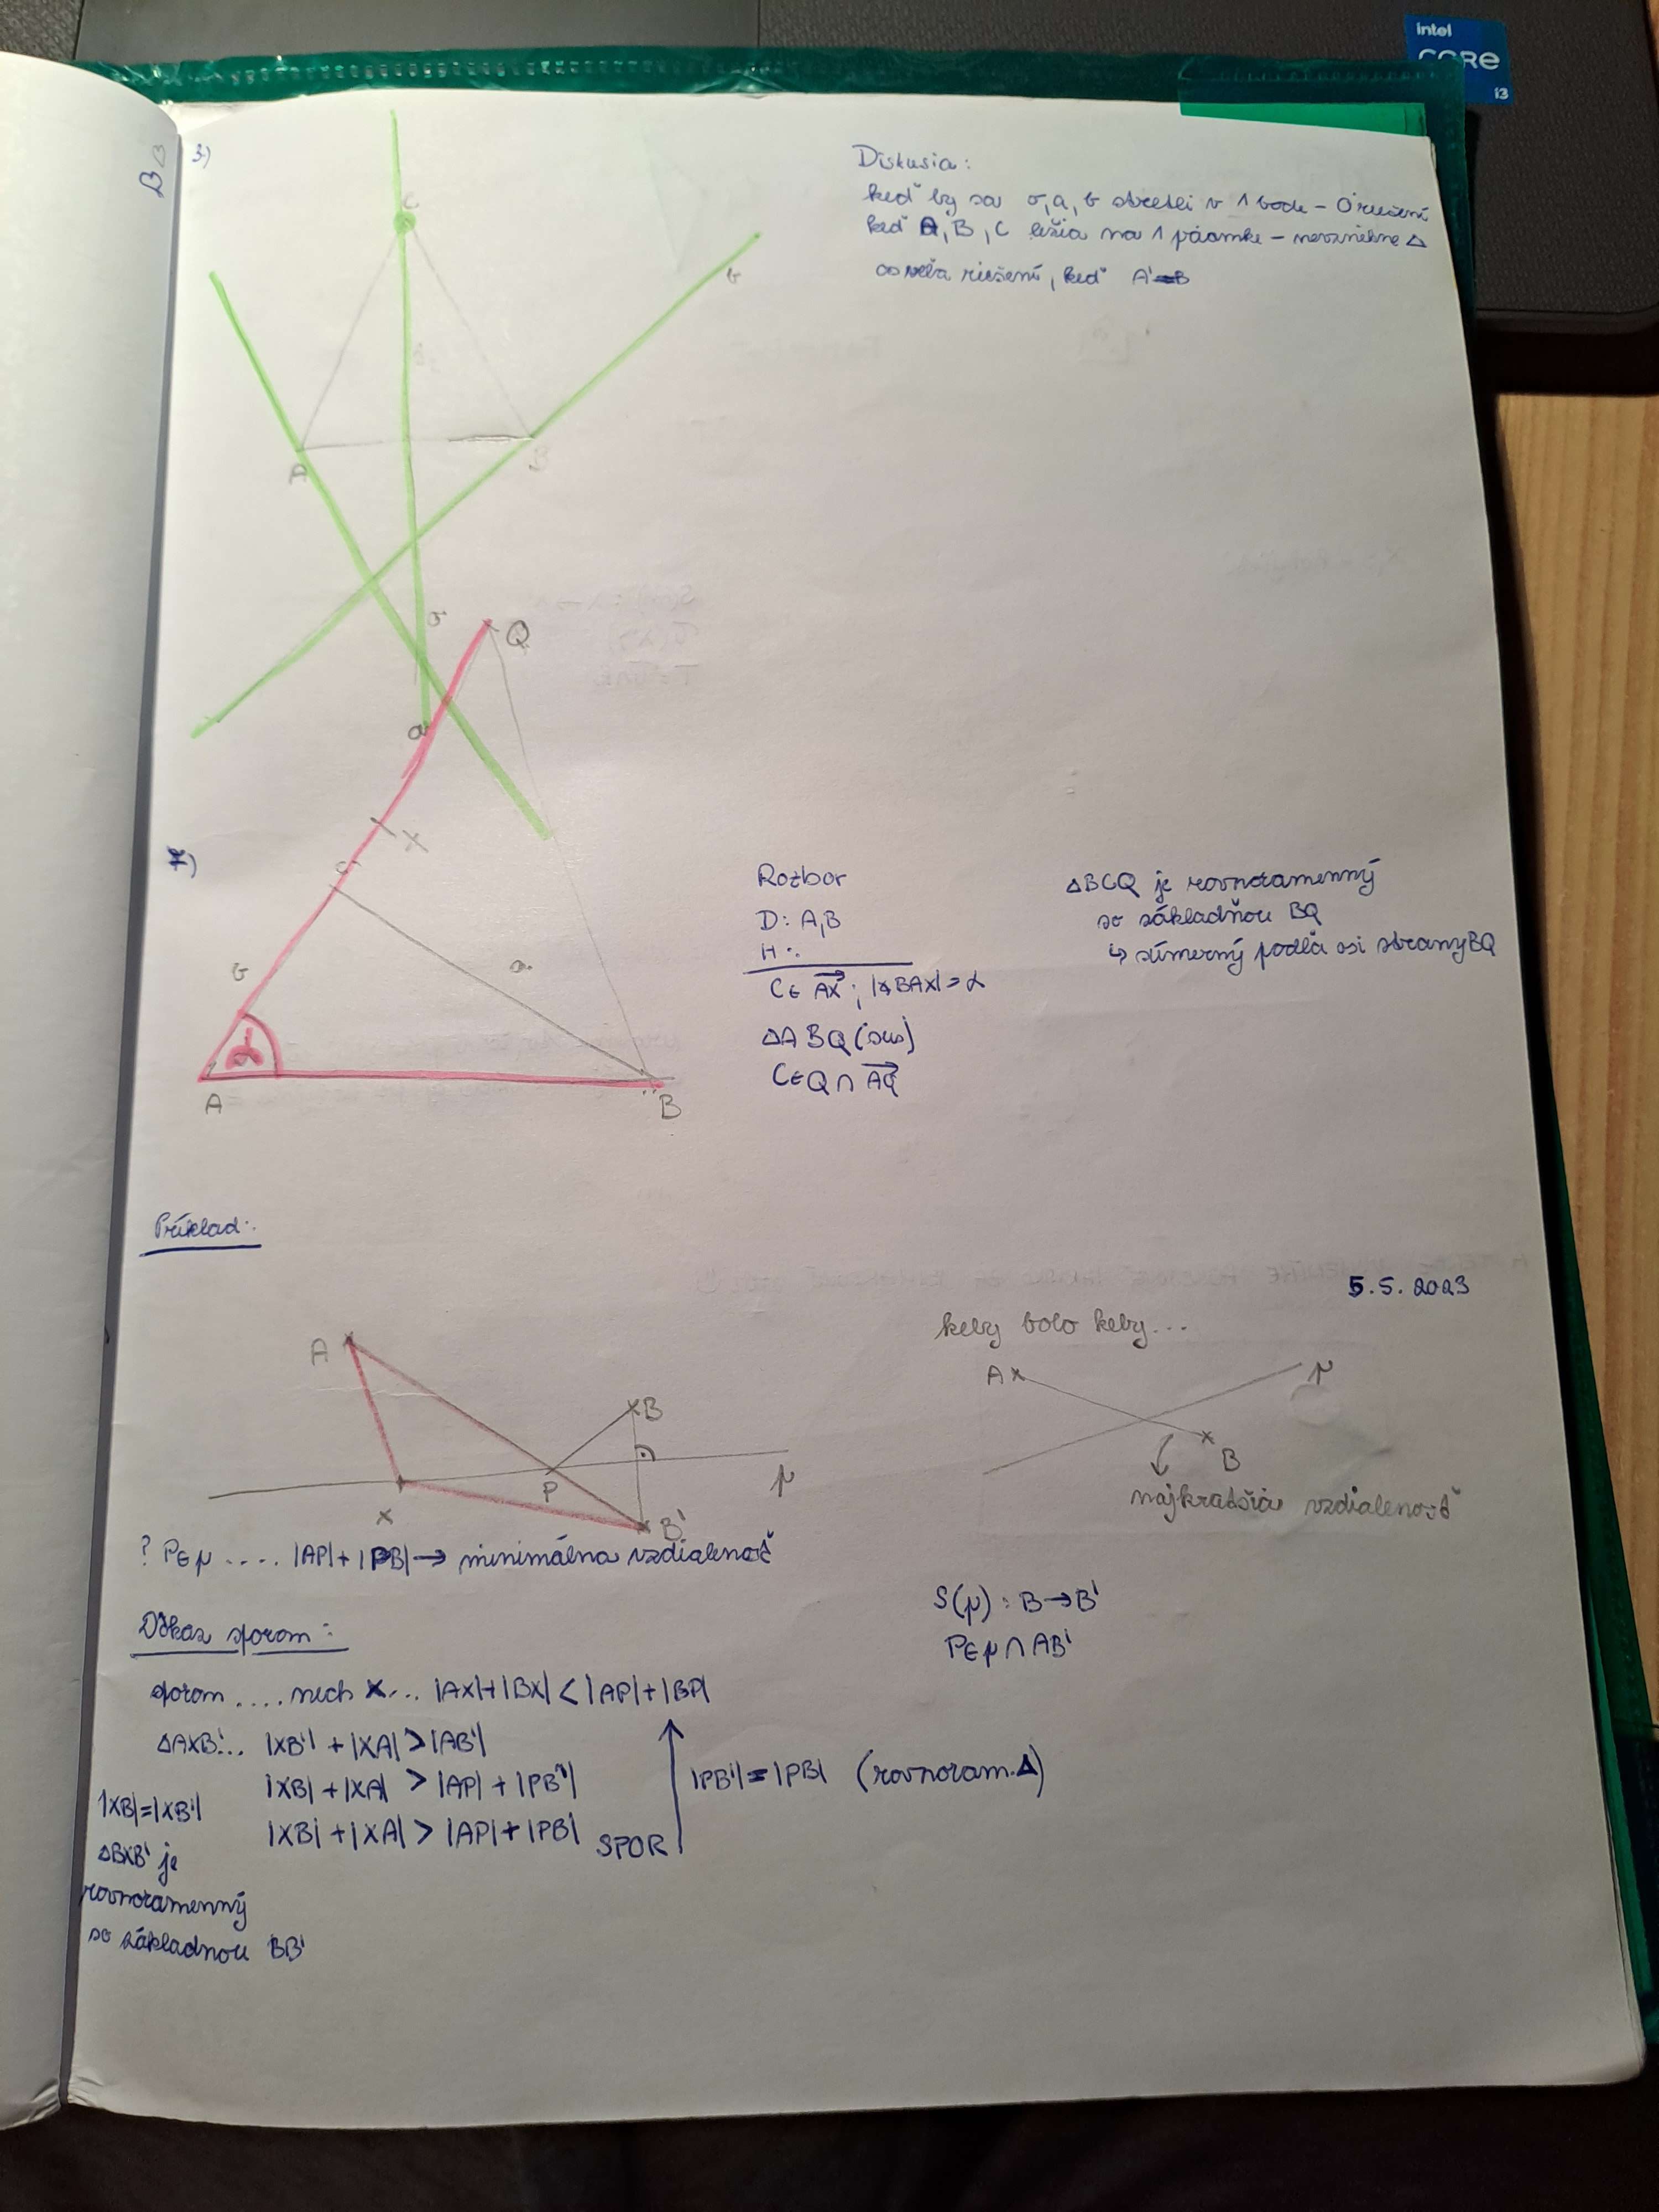 intel
CORE
i3
B
3)
Diskusia:
keď by sa σ, a, b stretli v 1 bode – 0 riešení
keď A, B, C ležia na 1 priamke – nevznikne △
∞ veľa riešení, keď A'=B
C
b
A
B
σ
Q
a
X
7)
C
Rozbor
D: A,B
H:.
C∈ AX ; |∢BAX| = α
△ABQ (sus)
C∈Q ∩ AQ
△BCQ je rovnoramenný
so základňou BQ
↳ súmerný podľa osi strany BQ
b
a
α
A
B
Príklad:.
5.5.2023
keby bolo keby...
A
B
P
X
p
B'
A
p
B
najkratšia vzdialenosť
? P∈p .... |AP|+|PB| → minimálna vzdialenosť
S(p) : B→B'
P∈p ∩ AB'
Dôkaz sporom:
sporom .... nech X... |AX|+|BX| < |AP|+|BP|
△AXB'... |XB'| + |XA| > |AB'|
|XB| + |XA| > |AP| + |PB'|
|XB| + |XA| > |AP| + |PB| SPOR
|PB'| = |PB| (rovnoram. △)
|XB|=|XB'|
△BXB' je
rovnoramenný
so základnou BB'